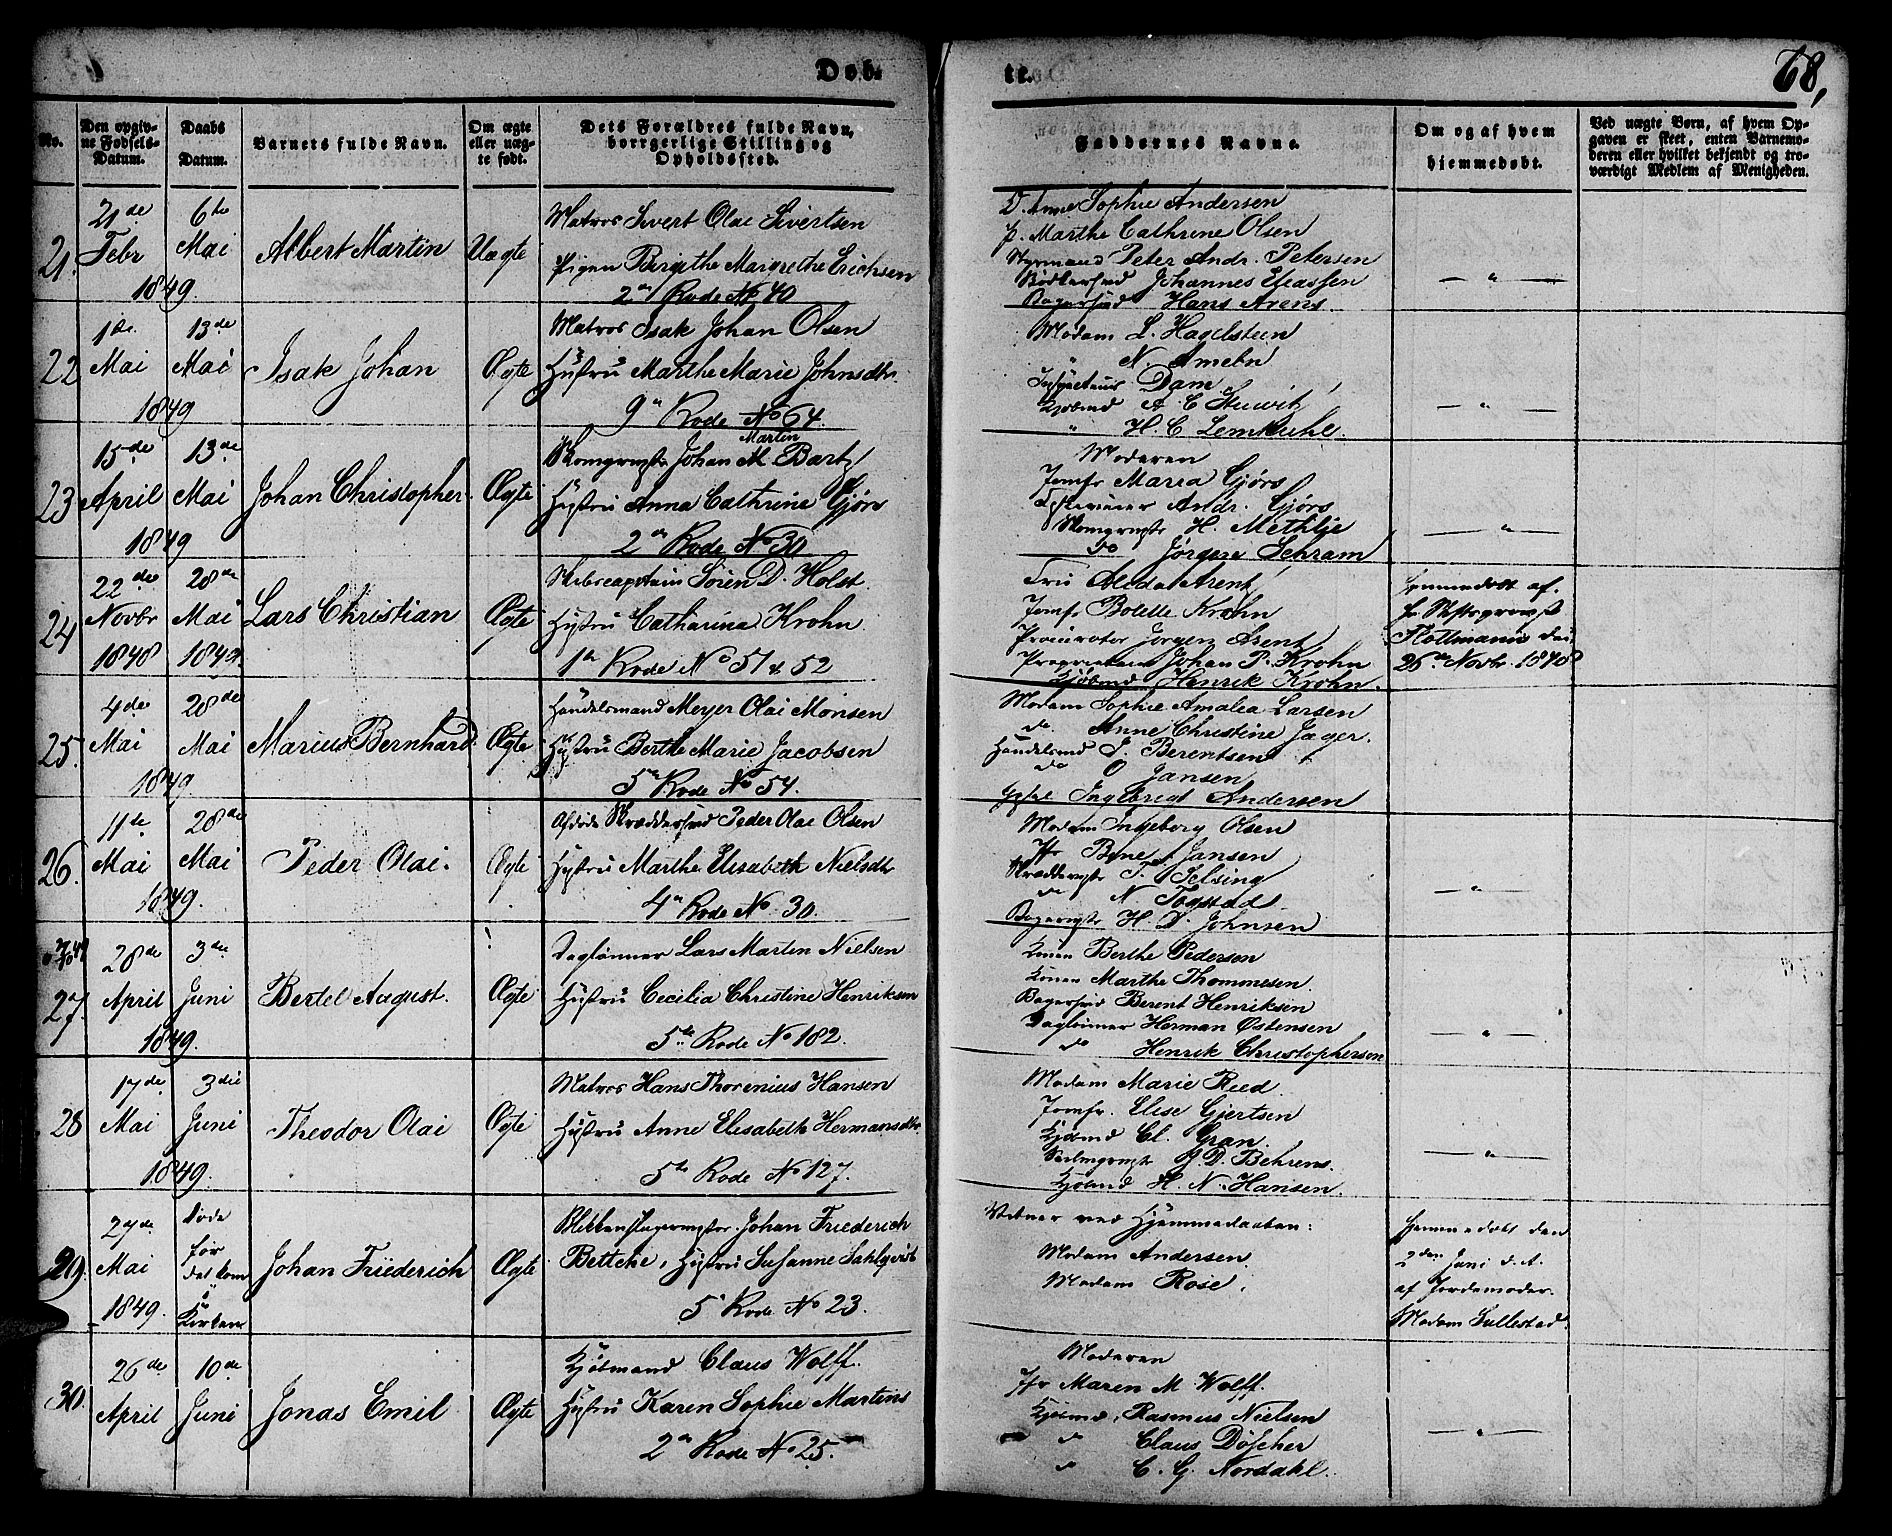 Døb-
te.
68,
No.
Den opgiv-
ne Fødsels-
Datum.
Daabs
Datum.
Barnets fulde Navn.
Om ægte
eller uæg-
te født.
Dets Forældres fulde Navn,
borrgerlige Stilling og
Opholdssted.
Faddernes Navne.
Om og af hvem
hjemmedøbt.
Ved uægte Børn, af hvem Op-
gaven er skeet, enten Barnemo-
deren eller hvilket bekjendt og tro-
værdigt Medlem af Menigheden.
21.
21de Febr 1849.
6te Mai
Albert Martin
Uægte
Matros Sivert Olai Sivertsen
Pigen Birgithe Margrethe Erichsen
2den Rode No 40
Anne Sophie Andersen
p. Marthe Cathrine Olsen
Styrmand Peter Andr. Petersen
Bødkersvd Johannes Eliassen
Bagersvd Hans Arens
— " —
22
1de Mai 1849
13de Mai
Isak Johan
Ægte
Matros Isak Johan Olsen
Hustru Marthe Marie Johnsdtr.
9n Rode No 64.
Madam L. Hagelsteen
" N. Ameln
Inspecteur Dam
Kjøbmd A C Sturvitz
" H. C. Lemkuhl.
— " —
23
15de April 1849
13de Mai
Johan Christopher
Ægte
Martin
Skomgrmstr Johan M. Bartz
Hustru Anna Cathrine Gjørs
2den Rode No 30
Moderen
Jomfr Maren Gjørs
Andr. Gjørs
Skomgrmstr H. Methlje
do Jørgen Schram
— " —
24
22de Novbr 1848
28de Mai 1849.
Lars Christian
Ægte
Skibscapitain Søren D. Holst.
Hustru Catharina Krohn
1te Rode No 51 & 52
Fru Alida Arentz
Jomfr Bolette Krohn
Procurator Jørgen Arentz
Proprietair Johan P. Krohn
Kjøbmd Henrik Krohn.
Hjemmedøbt af
Hr. Stiftsprovst
Flottmann den
25de Novbr. 1848
25.
4de Mai 1849.
28de Mai
Marius Bernhard
Ægte
Handelsmand Meyer Olai Monsen
Hustru Berthe Marie Jacobsen
5te Rode No 54.
Madam Sophie Amalia Larsen
do. Anne Christine Jæger.
Handelsmd J. Berentsen
do O Jansen
Ingebrigt Andersen
26.
11de Mai 1849.
28de Mai
Peder Olai.
Ægte
Afdøde Skræddersvd Peder Olai Olsen
Hustru Marthe Elisabeth Nielsdtr
4n Rode No 30.
Madam Ingeborg Olsen
Jfr Bine Jansen
Skræddermstr T. Selsing
do N. Togstad
Bagermstr H. D. Johnsen
— " —
27.
28de April 1849.
3die Juni
Bertel August.
Ægte
Daglønner Lars Martin Nielsen
Hustru Cecilia Christine Henriksen
5te Rode No 182.
Konen Berthe Pedersen
Konen Marthe Thommesen
Bagersvd Berent Henriksen
Dagløinner Herman Østensen
do Henrik Christophersen
— " —
28
17de Mai 1849.
3die Juni
Theodor Olai
Ægte
Matros Hans Thorenius Hansen
Hustru Anne Elisabeth Hermansdtr.
5te Rode No 127.
Madam Marie Reed.
Jomfr. Elise Gjertsen
Kjøbmd Cl. Gran.
Seilmgrmstr J. D. Behrens.
Kjøbmd H. N. Hansen.
— " —
29.
27de Mai 1849.
Døde før det kom i Kirken
Johan Friederich
Ægte
Blikkenslagermester Johan Friederich
Bettche, Hustru Susanne Sahlqvist
5' Rode No 23.
Vidner ved Hjemmedaaben:
Madam Andersen.
Madam Rose.
Hjemmedøbt den
2den Juni d. A.
af Jordemoder.
Madam Sullestad.
30.
26de April
10de Juni
Jonas Emil
Ægte
Kjøbmand Claus Wolff.
Hustru Karen Sophie Martens
2den Rode No 25.
Moderen
Jfr Maren M. Wolff.
Kjøbmd. Rasmus Nielsen
do Claus Döscher
do C. G. Nordahl.
— " —